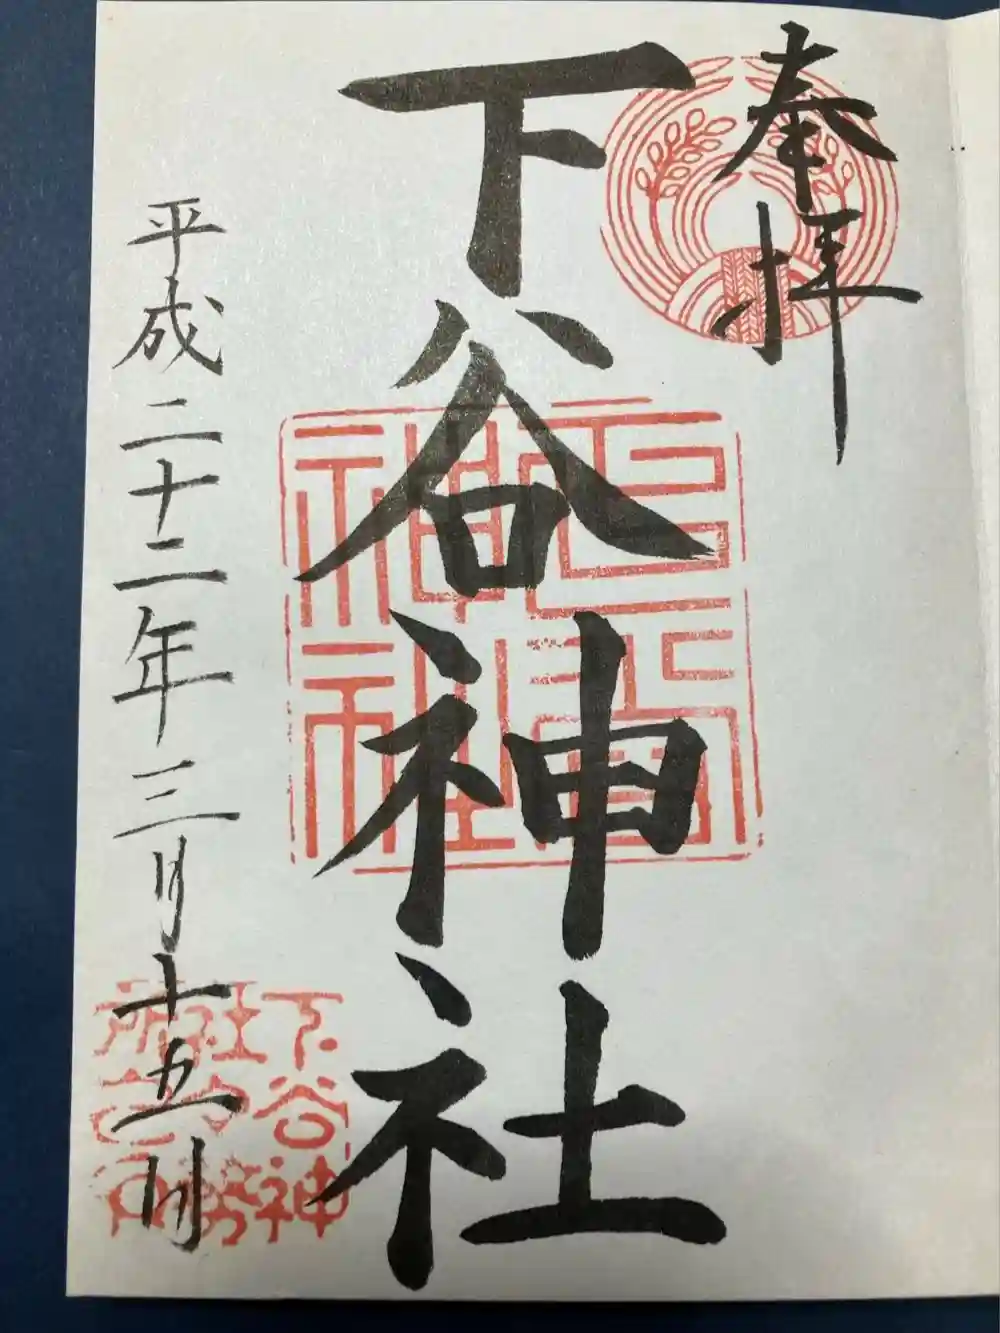 奉拝
下谷神社
平成二十二年三月十五日
下谷神